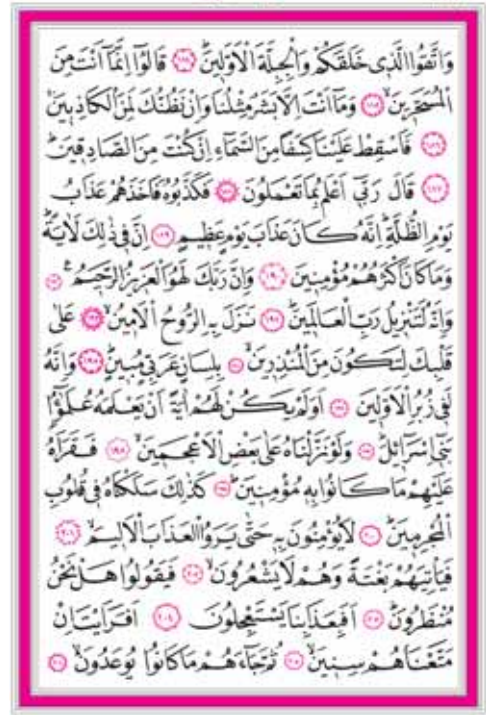 وَاتَّقُوا الَّذِى خَلَقَكُمْ وَالْجِبِلَّةَ الْاَوَّلِينَۜ ﴿١٨٤﴾ قَالُٓوا اِنَّمَٓا اَنْتَ مِنَ
الْمُسَحَّرِينَۙ ﴿١٨٥﴾ وَمَٓا اَنْتَ اِلَّا بَشَرٌ مِثْلُنَا وَاِنْ نَظُنُّكَ لَمِنَ الْكَاذِبِينَۚ
﴿١٨٦﴾ فَاَسْقِطْ عَلَيْنَا كِسَفًا مِنَ السَّمَٓاءِ اِنْ كُنْتَ مِنَ الصَّادِقِينَۜ
﴿١٨٧﴾ قَالَ رَبِّٓى اَعْلَمُ بِمَا تَعْمَلُونَ ﴿١٨٨﴾ فَكَذَّبُوهُ فَاَخَذَهُمْ عَذَابُ
يَوْمِ الظُّلَّةِۜ اِنَّهُ كَانَ عَذَابَ يَوْمٍ عَظِيمٍ ﴿١٨٩﴾ اِنَّ فِى ذٰلِكَ لَاٰيَةًۜ
وَمَا كَانَ اَكْثَرُهُمْ مُؤْمِنِينَ ﴿١٩٠﴾ وَاِنَّ رَبَّكَ لَهُوَ الْعَزِيزُ الرَّحِيمُ۟ ﴿١٩١﴾
وَاِنَّهُ لَتَنْزِيلُ رَبِّ الْعَالَمِينَۜ ﴿١٩٢﴾ نَزَلَ بِهِ الرُّوحُ الْاَمِينُۙ ﴿١٩٣﴾ عَلٰى
قَلْبِكَ لِتَكُونَ مِنَ الْمُنْذِرِينَۙ ﴿١٩٤﴾ بِلِسَانٍ عَرَبِىٍّ مُبِينٍۜ ﴿١٩٥﴾ وَاِنَّهُ
لَفِى زُبُرِ الْاَوَّلِينَ ﴿١٩٦﴾ اَوَلَمْ يَكُنْ لَهُمْ اٰيَةً اَنْ يَعْلَمَهُ عُلَمٰٓؤُا
بَنِٓى اِسْرَٓائِلَۜ ﴿١٩٧﴾ وَلَوْ نَزَّلْنَاهُ عَلٰى بَعْضِ الْاَعْجَمِينَۙ ﴿١٩٨﴾ فَقَرَاَهُ
عَلَيْهِمْ مَا كَانُوا بِهِ مُؤْمِنِينَۜ ﴿١٩٩﴾ كَذٰلِكَ سَلَكْنَاهُ فِى قُلُوبِ
الْمُجْرِمِينَۜ ﴿٢٠٠﴾ لَا يُؤْمِنُونَ بِهِ حَتّٰى يَرَوُا الْعَذَابَ الْاَلِيمَۙ ﴿٢٠١﴾
فَيَأْتِيَهُمْ بَغْتَةً وَهُمْ لَا يَشْعُرُونَۙ ﴿٢٠٢﴾ فَيَقُولُوا هَلْ نَحْنُ
مُنْظَرُونَۜ ﴿٢٠٣﴾ اَفَبِعَذَابِنَا يَسْتَعْجِلُونَ ﴿٢٠٤﴾ اَفَرَاَيْتَ اِنْ
مَتَّعْنَاهُمْ سِنِينَۙ ﴿٢٠٥﴾ ثُمَّ جَٓاءَهُمْ مَا كَانُوا يُوعَدُونَۙ ﴿٢٠٦﴾